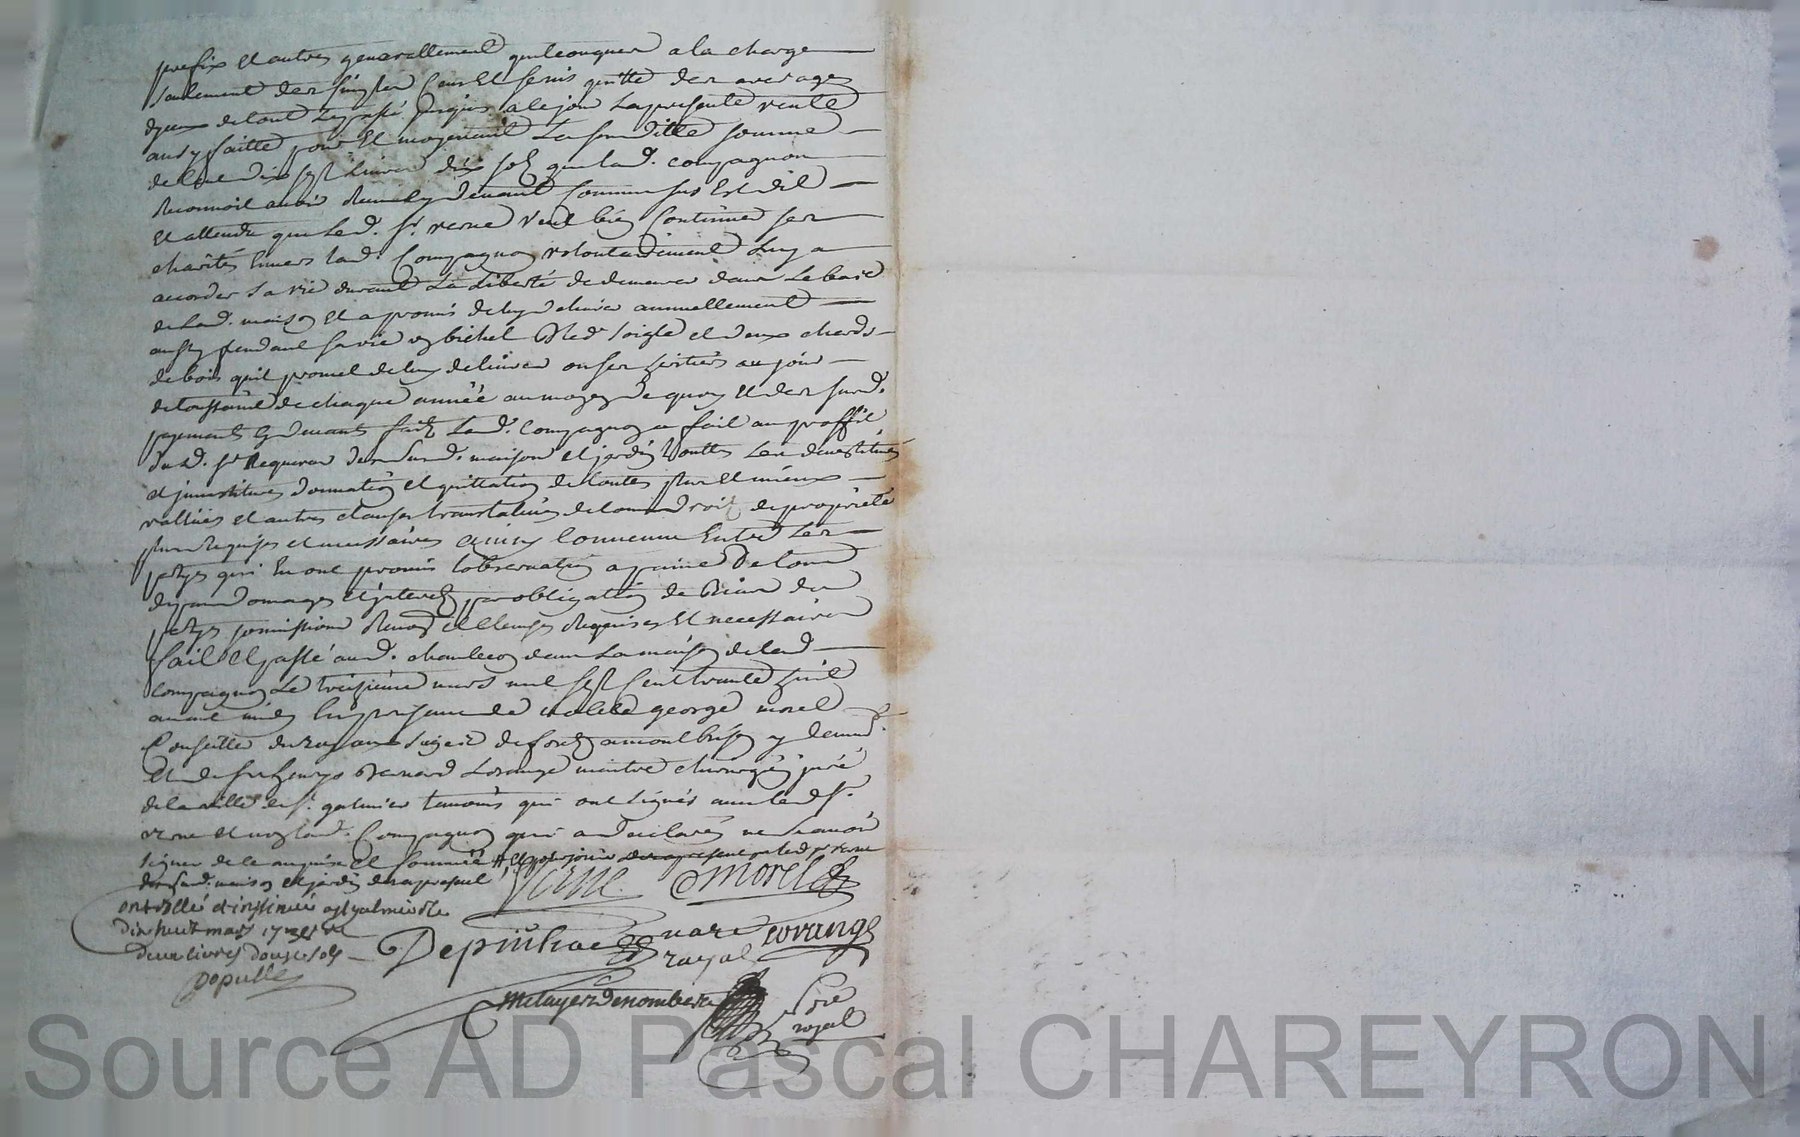 prefix et autres generallement quelconques a la charge
seulement des simples cens et servis quitte des arerages
d'yceux de tout le passé jusques a ce jour la presente vente
ainsy faitte pour et moyenant la susditte somme
de cent dix sept livres dix sols que lad. compagnon
reconnoit avoir receu cy devant comme sus est dit
et attendu que led. sr. verne veut bien continuer ses
charités envers lad. Compagnon volontairement luy a
accordé sa vie durant la liberté de demeurer dans le bas
de lad. maison et a promis de luy delivrer annuellement
aussy pendant sa vie un bichet bled soigle et deux chards
de bois qu'il promet de luy delivrer
de toussaint de chaque année au moyen de quoy et des susd.
payements cy devant faits lad. compagnon a fait au proffit
dud. sr. acquereur des susd. maison et jardin touttes les devestitures
et investitures donnation et quittation de toutes plus et mieux
vallues et autres clauses translatives de tous droits de propriété
plus requises et necessaires ainsy convenu entre les
partyes qui en ont promis l'observation a paine de tous
depans domages et interets par obligation de biens des
partyes soumissions renon. et clauses requises et necessaires
fait et passé aud. chambeon dans la maison de lad.
compagnon le treizieme mars mil sept cent trante huit
avant midy en presence de me george morel
Conseiller du roy au de forez a montbrison y demt.
et de sr. Bernard Lorange maitre chirurgien juré
de la ville de st. galmier temoins qui ont signés avec led. sr.
verne et non lad. Compagnon qui a declaré ne sçavoir
signer de ce enquise et sommée # et pour jouir des apresent par led. sr. verne
des susd. maison et jardin des apresent Verne Morel
controllé et insinué a st galmier le
dix huit mars 1738 Reçu
deux livres douze sols Depinhac nore royal Lorange
Populle
metayer Denombere nore royal
Source AD Pascal CHAREYRON